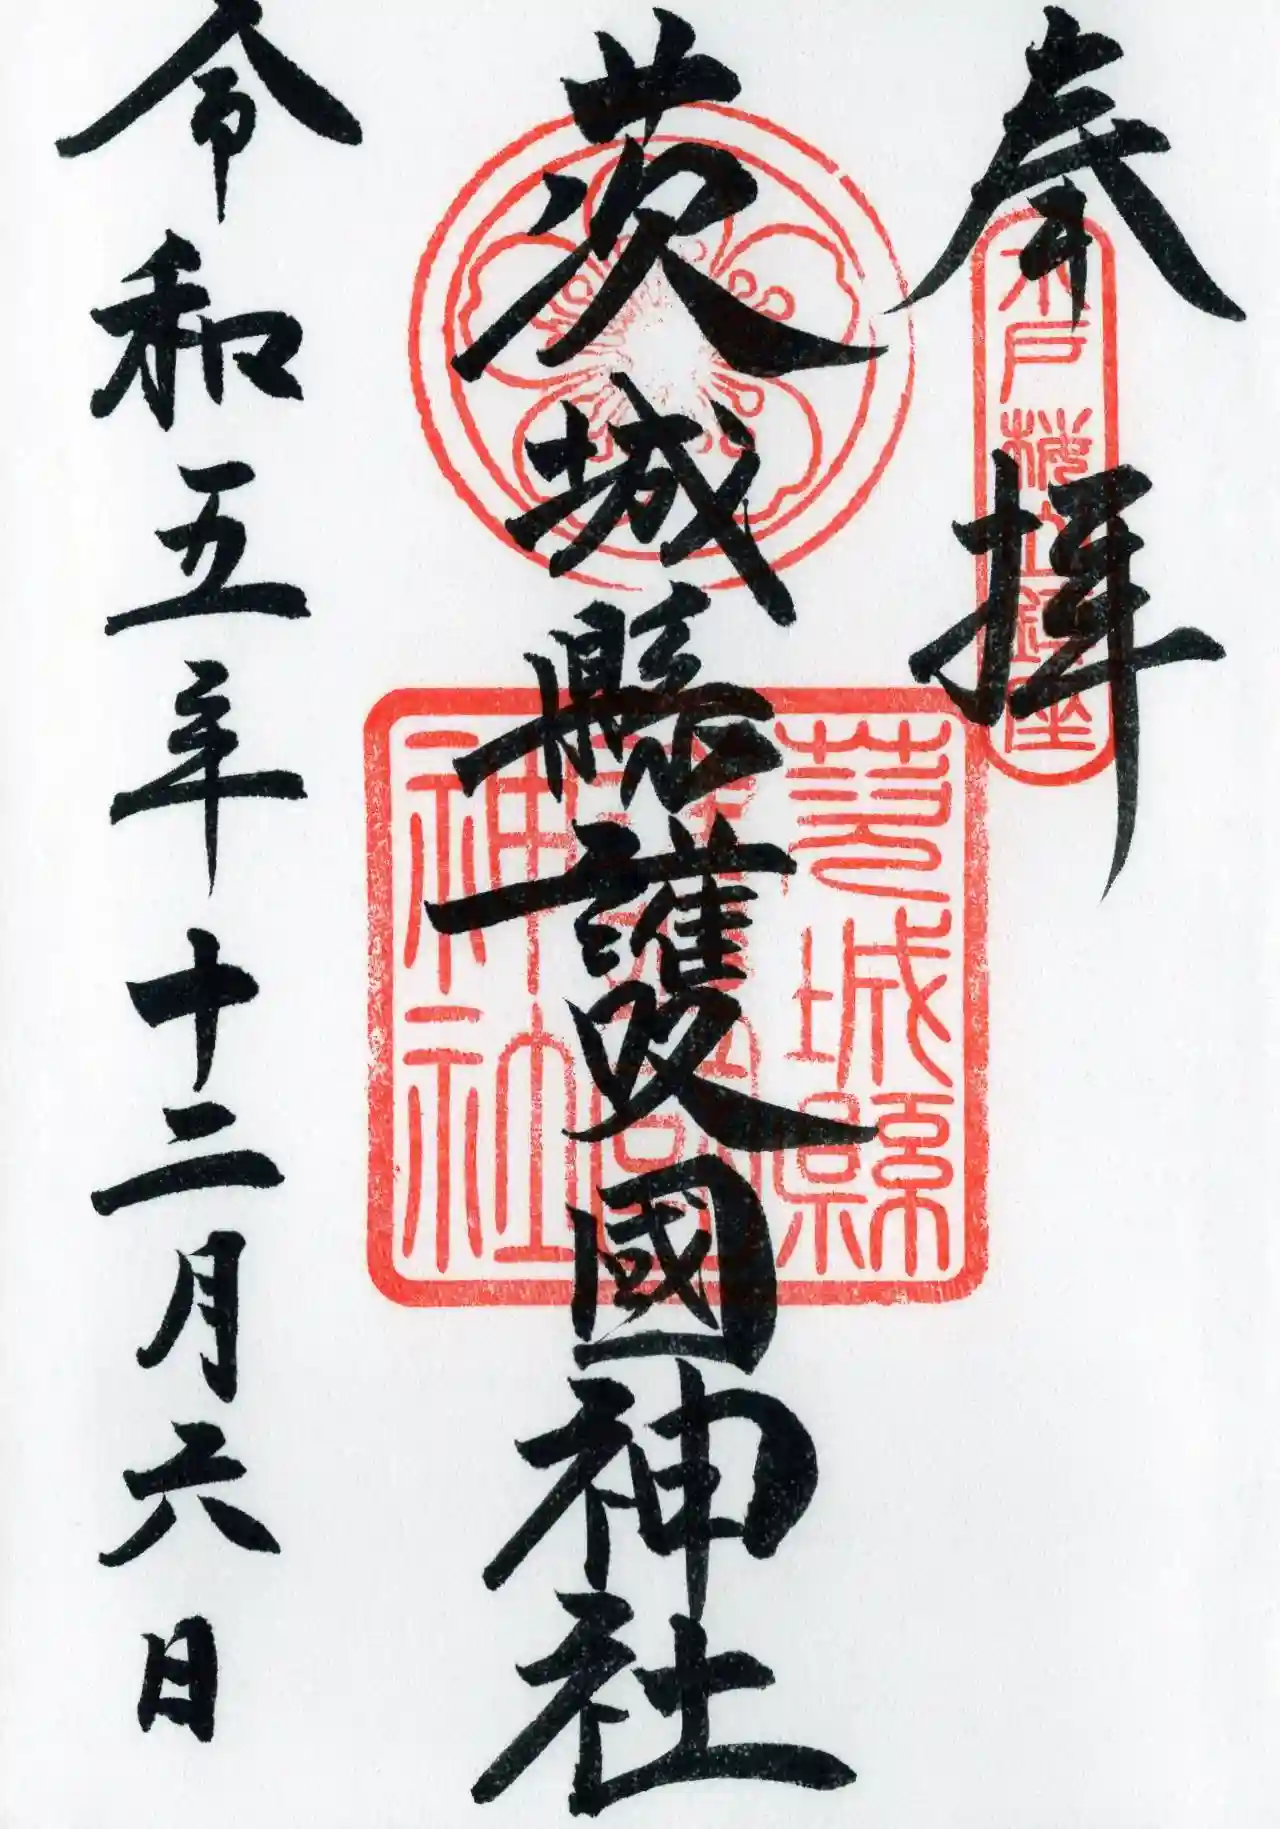 奉拝
水戸桜山鎮座
茨城縣護國神社
茨城縣
護國
神社
令和五年十二月六日